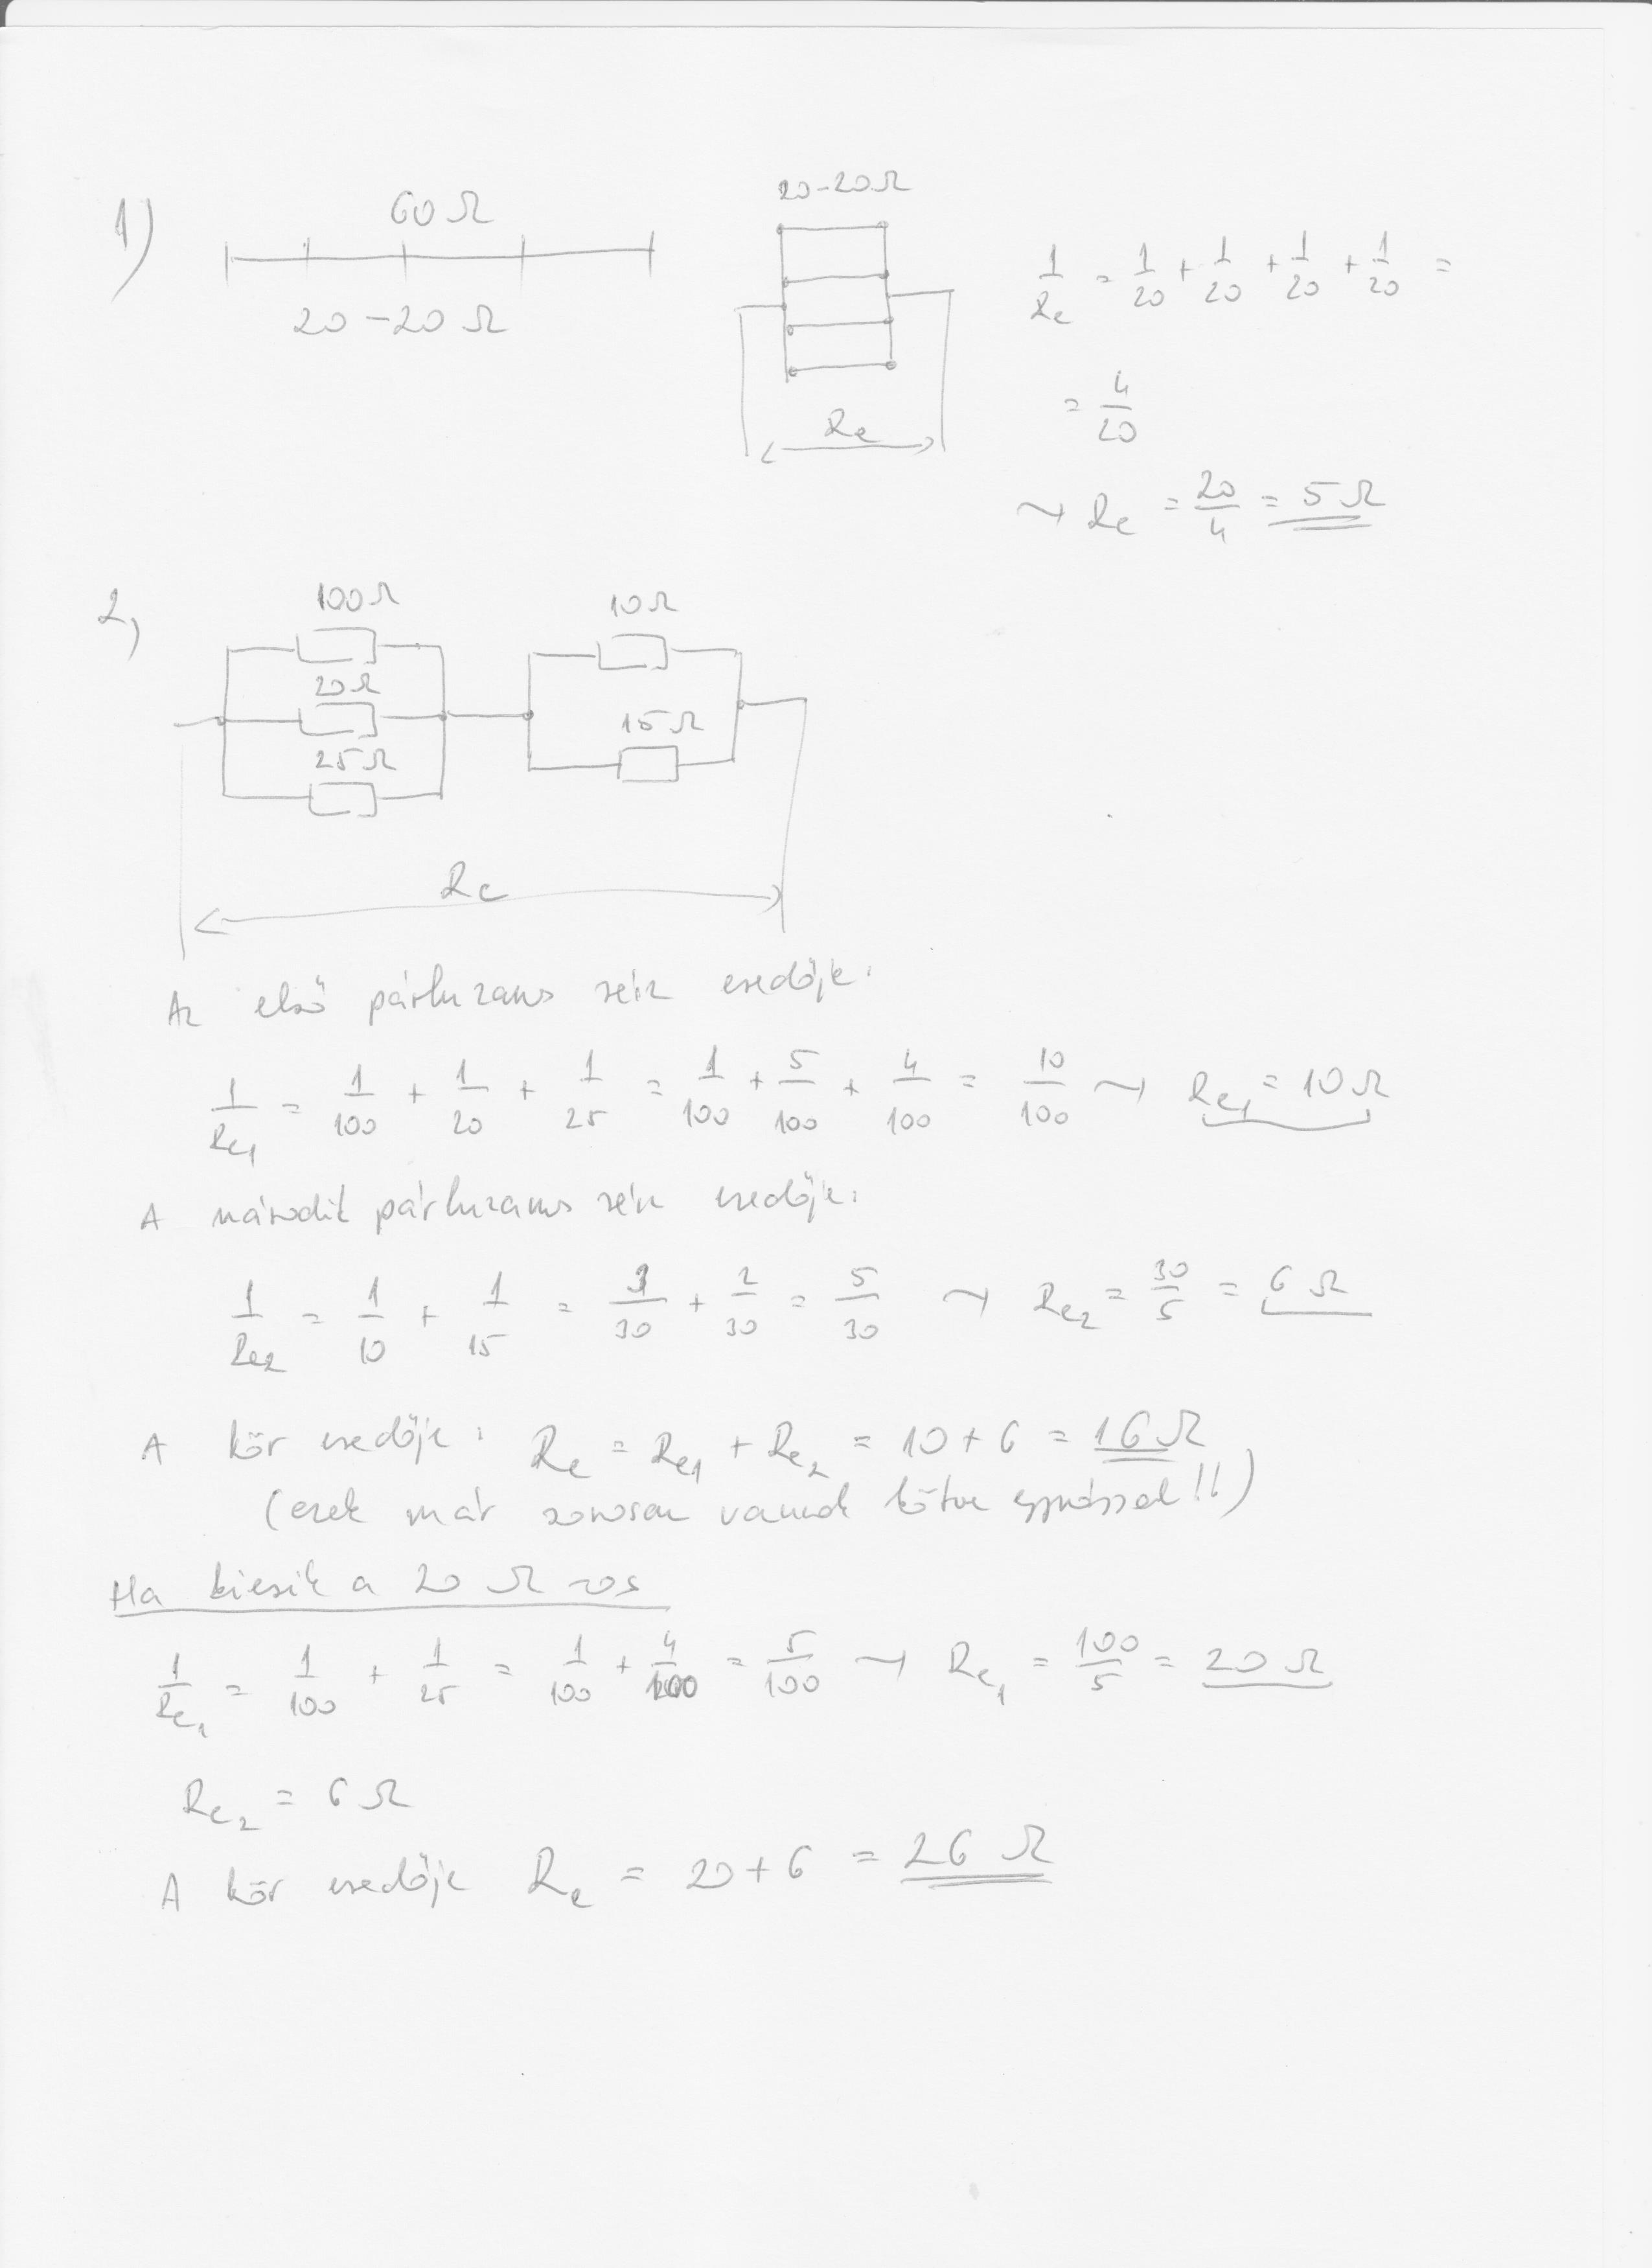 1)
60 Ω
20-20 Ω
20-20 Ω
Re
1/Re = 1/20 + 1/20 + 1/20 + 1/20 =
= 4/20
~ Re = 20/4 = 5 Ω
2,
100 Ω
20 Ω
25 Ω
10 Ω
15 Ω
Re
Az első párhuzamos rész eredője:
1/Re1 = 1/100 + 1/20 + 1/25 = 1/100 + 5/100 + 4/100 = 10/100 ~ Re1 = 10 Ω
A második párhuzamos rész eredője:
1/Re2 = 1/10 + 1/15 = 3/30 + 2/30 = 5/30 ~ Re2 = 30/5 = 6 Ω
A kör eredője: Re = Re1 + Re2 = 10 + 6 = 16 Ω
(ezek már sorosan vannak kötve egymással!!)
Ha kiesik a 20 Ω-os
1/Re1 = 1/100 + 1/25 = 1/100 + 4/100 = 5/100 ~ Re1 = 100/5 = 20 Ω
Re2 = 6 Ω
A kör eredője Re = 20 + 6 = 26 Ω